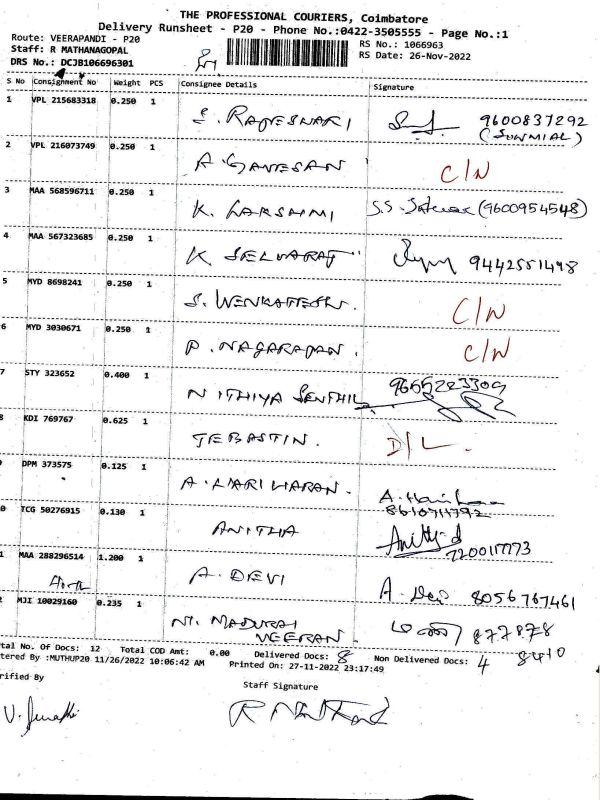 THE PROFESSIONAL COURIERS, Coimbatore
Delivery Runsheet - P20 - Phone No.:0422-3505555 - Page No.:1
Route: VEERAPANDI - P20
Staff: R MATHANAGOPAL
DRS No.: DCJB106696301
RS No.: 1066963
RS Date: 26-Nov-2022
S No Consignment No Weight PCS Consignee Details Signature
1 VPL 215683318 0.250 1 S. RAJESWARI 9600837292
2 VPL 216073749 0.250 1 A. GANESAN C/N
3 MAA 568596711 0.250 1 K. LAKSHMI S.S. (9600954548)
4 MAA 567323685 0.250 1 K. SELVARAJ 9442551498
5 MYD 8698241 0.250 1 S. C/N
6 MYD 3030671 0.250 1 P. NAGARAJAN. C/N
7 STY 323652 0.400 1 NITHIYA SENTHIL
8 KDI 769767 0.625 1 JEBASTIN. D/L.
DPM 373575 0.125 1 A. HARIHARAN. A.
8610711792
0 TCG 50276915 0.130 1 ANITHA
7200117773
1 MAA 288296514 1.200 1 A. DEVI A. 8056767461
2 MJI 10029160 0.235 1 M. MADURAI
VEERAN. 877878
8410
tal No. Of Docs: 12 Total COD Amt: 0.00 Delivered Docs: 8 Non Delivered Docs: 4
tered By :MUTHUP20 11/26/2022 10:06:42 AM Printed On: 27-11-2022 23:17:49
rified By
Staff Signature